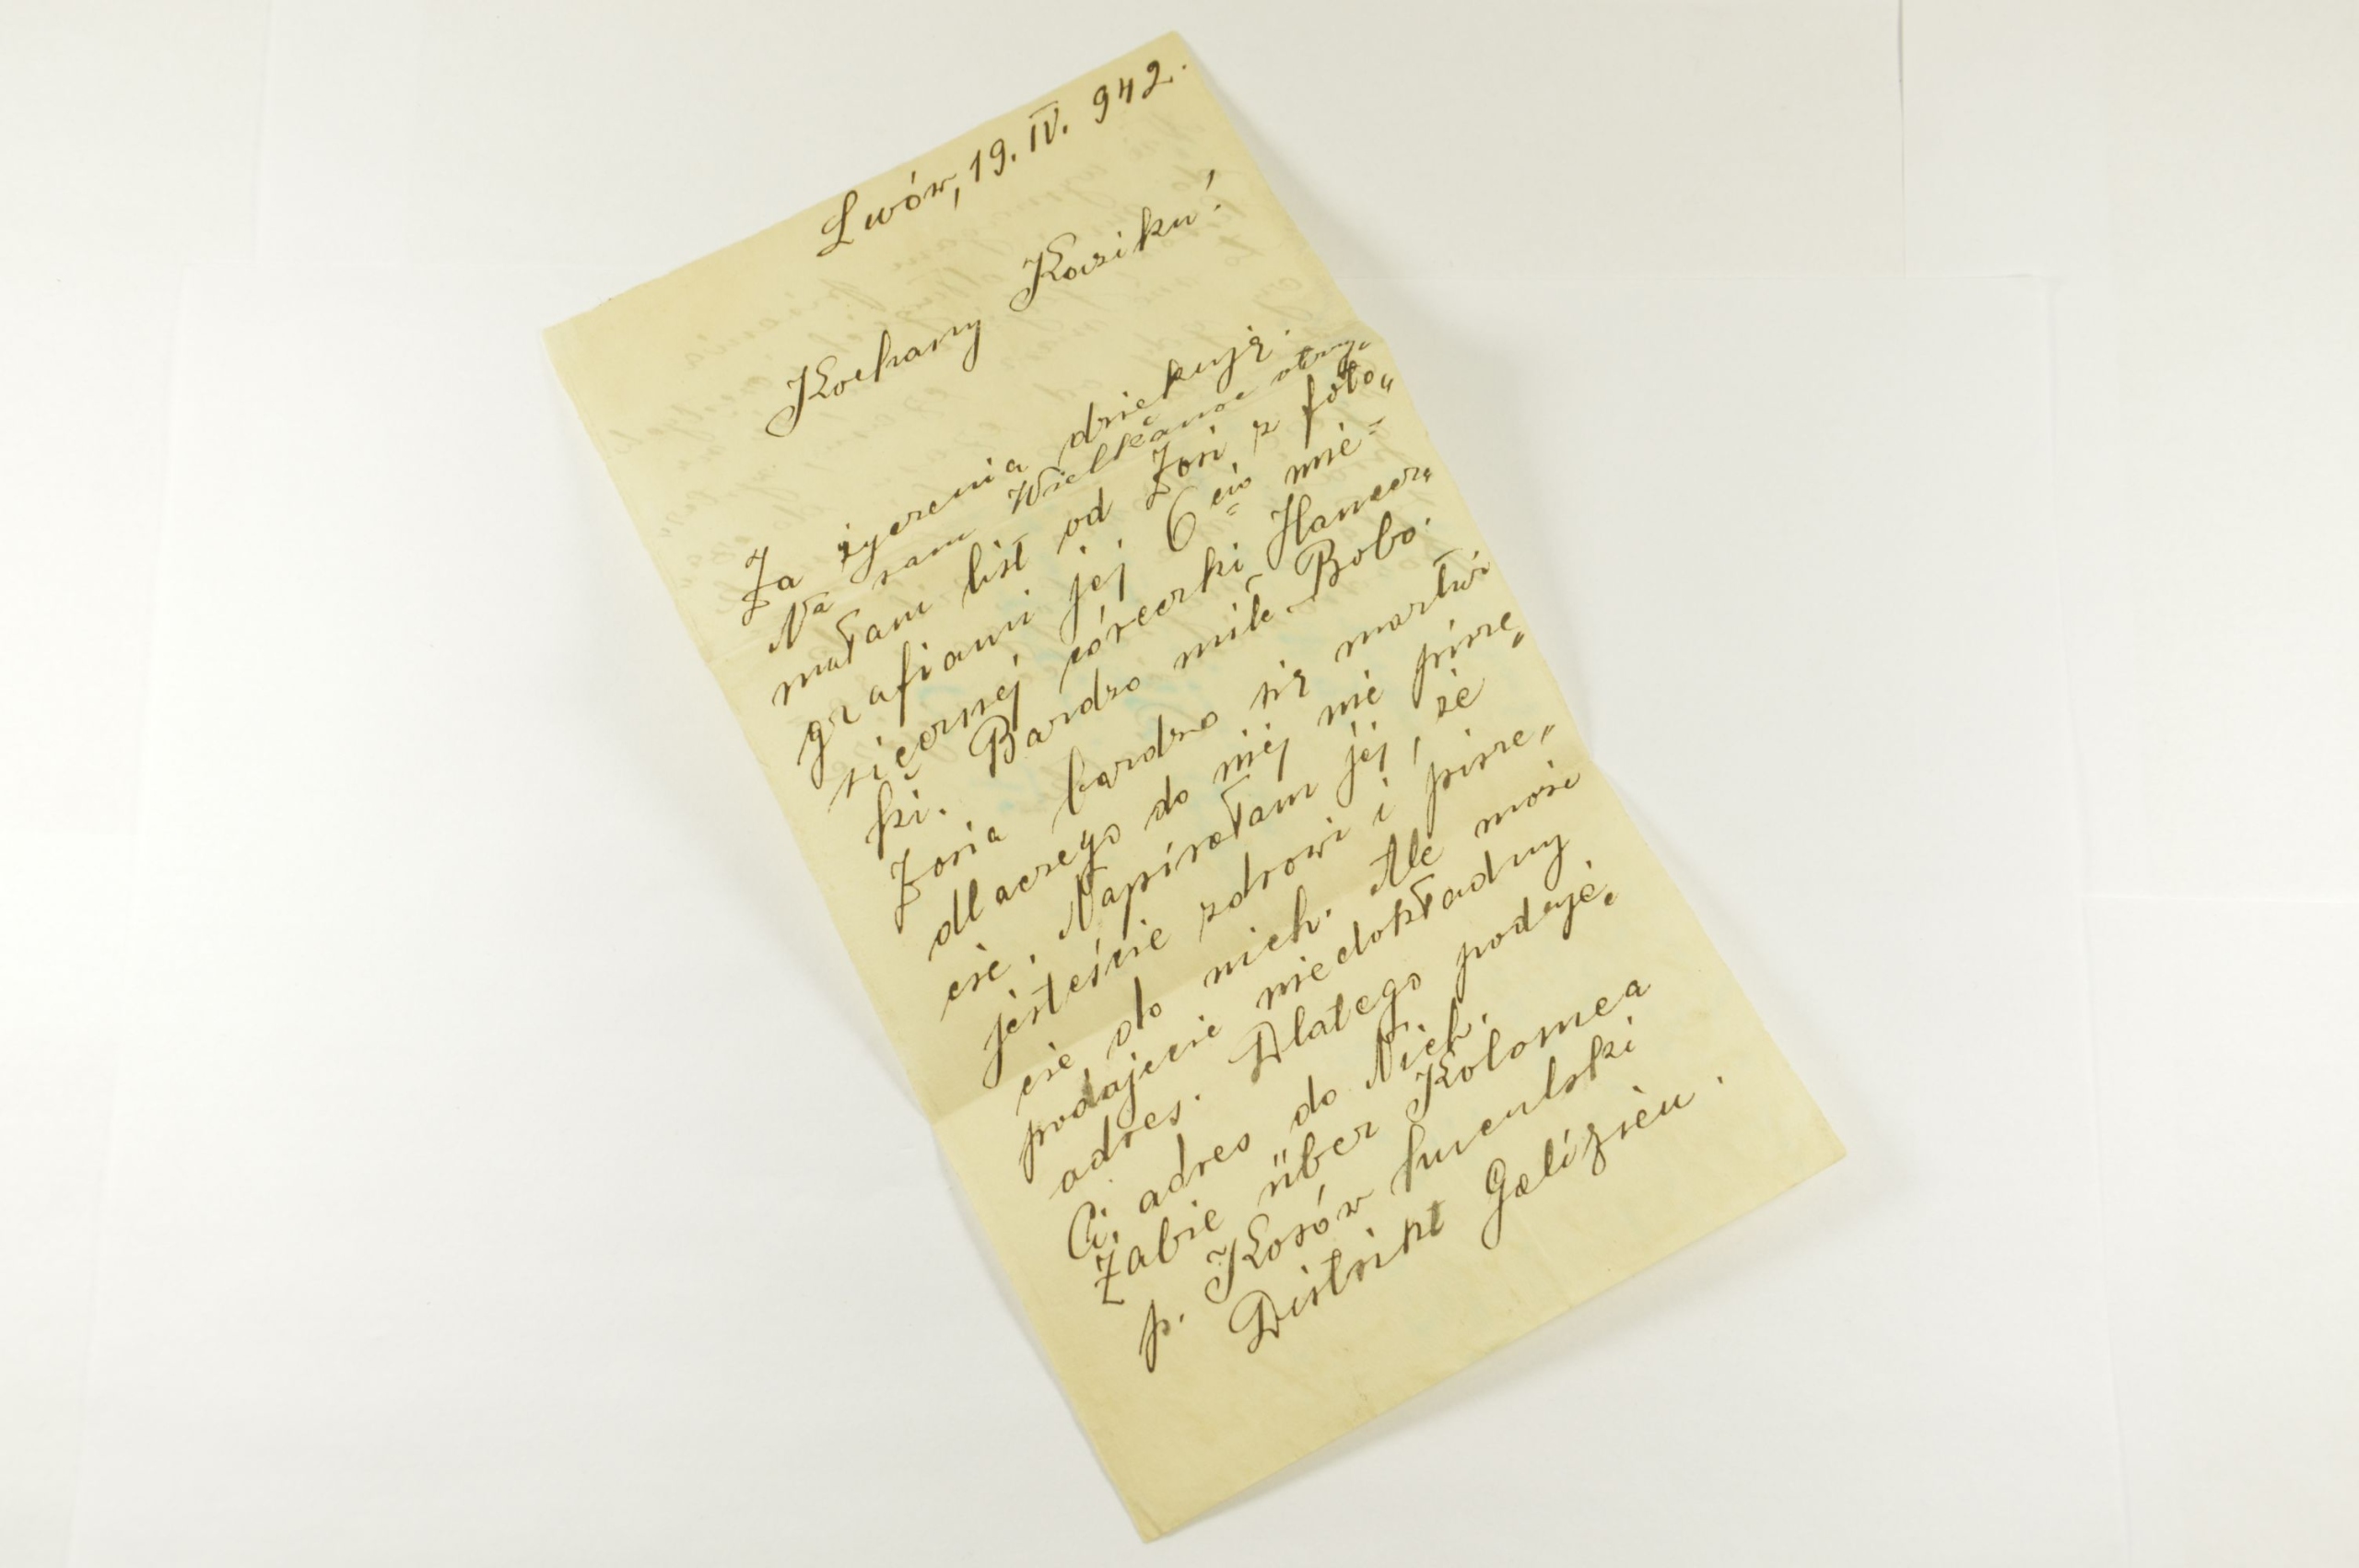 Lwów, 19. IV. 942.
Kochany Kaziku!
Za życzenia dziękuję.
Na sam Wielkanoc otrzy„
małam list od Zosi z foto„
grafiami jej 6cio mie=
sięcznej córeczki Hanecz„
ki. Bardzo miłe Bobo.
Zosia bardzo się martwi
dlaczego do niej nie pisze„
cie. Napisałam jej, że
jesteście zdrowi i pisze„
cie do nich. Ale może
podajecie niedokładny
adres. Dlatego podaję
Ci, adres do Nich.
Żabie über Kolomea
p. Kosów huculski
Distrikt Galizien.